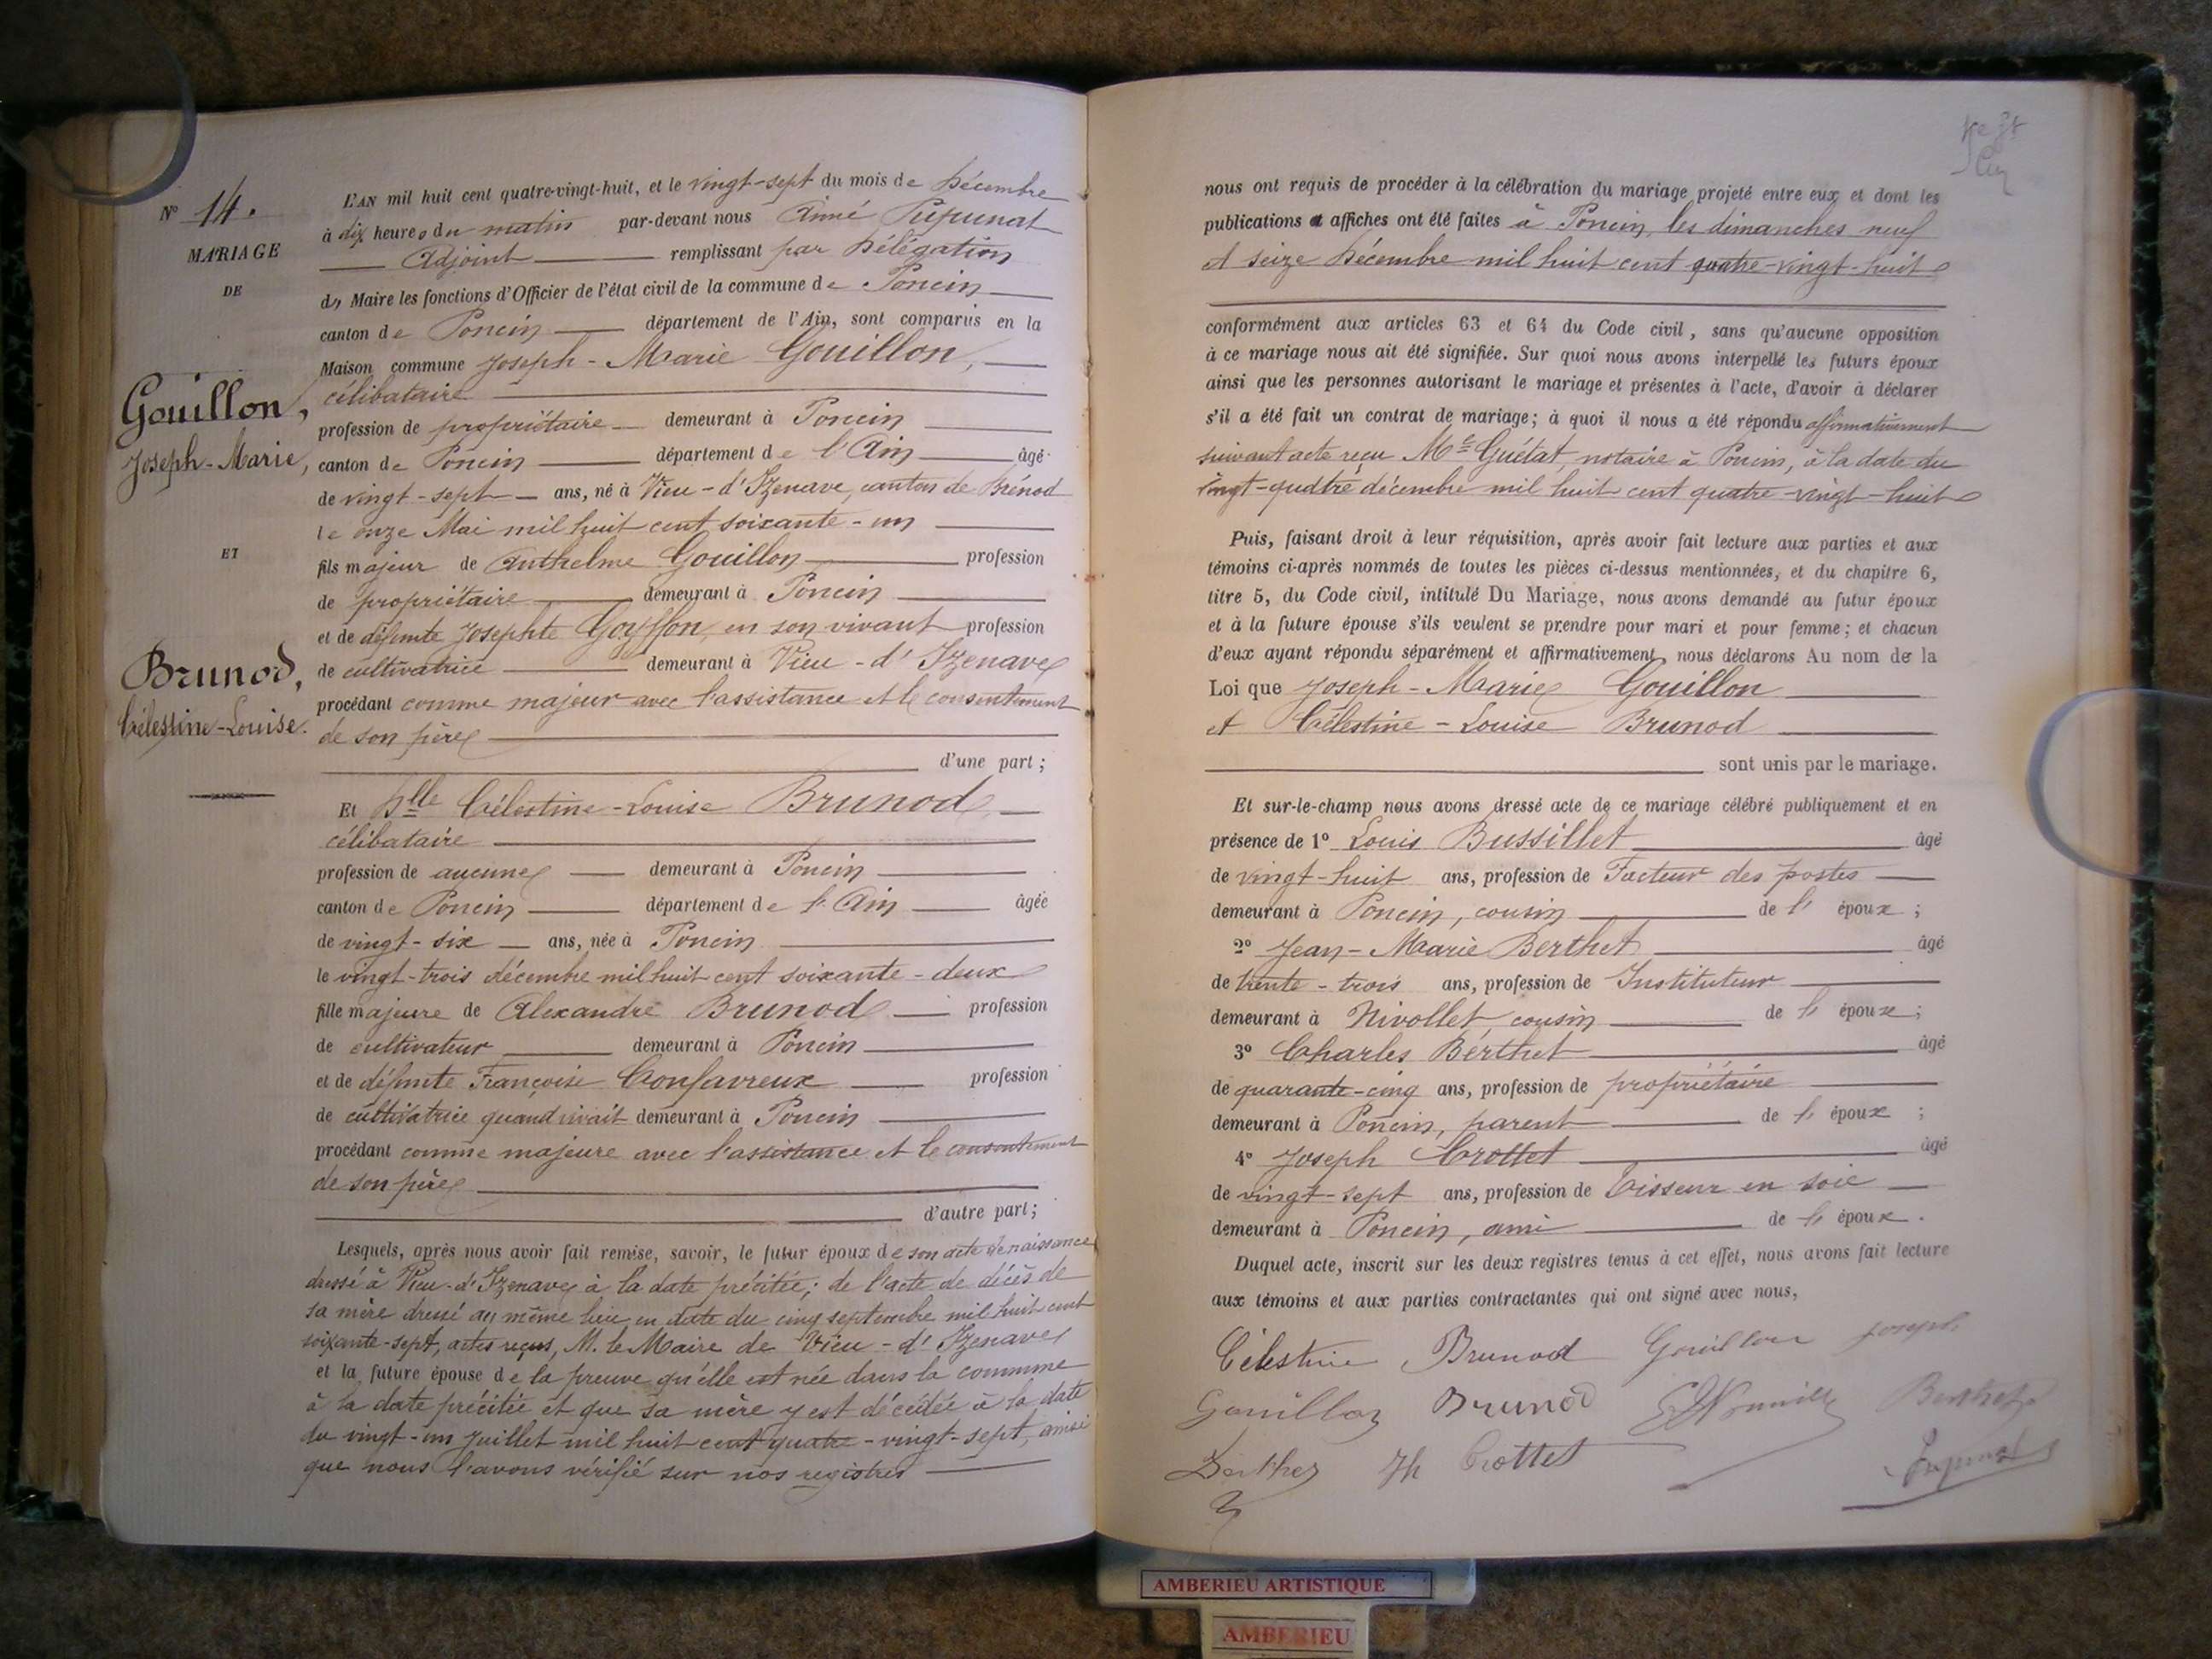 N° 14.
MARIAGE
DE
Gouillon,
Joseph-Marie,
ET
Brunod,
Célestine-Louise.
L'AN mil huit cent quatre-vingt-huit, et le vingt-sept du mois de Décembre
à dix heures du matin par-devant nous Aimé Pupunat
Adjoint remplissant par Délégation
du Maire les fonctions d'Officier de l'état civil de la commune de Poncin
canton de Poncin département de l'Ain, sont comparus en la
Maison commune Joseph-Marie Gouillon,
célibataire
profession de propriétaire demeurant à Poncin
canton de Poncin département de l'Ain âgé
de vingt-sept ans, né à Vieu-d'Izenave, canton de Brénod
le onze Mai mil huit cent soixante-un
fils majeur de Anthelme Gouillon profession
de propriétaire demeurant à Poncin
et de défunte Josephte Goyffon, en son vivant profession
de cultivatrice demeurant à Vieu-d'Izenave
procédant comme majeur avec l'assistance et le consentement
de son père
d'une part;
Et Dlle Célestine-Louise Brunod,
célibataire
profession de aucune demeurant à Poncin
canton de Poncin département de l'Ain âgée
de vingt-six ans, née à Poncin
le vingt-trois décembre mil huit cent soixante-deux
fille majeure de Alexandre Brunod profession
de cultivateur demeurant à Poncin
et de défunte Françoise Confavreux profession
de cultivatrice quand vivait demeurant à Poncin
procédant comme majeure avec l'assistance et le consentement
de son père
d'autre part;
Lesquels, après nous avoir fait remise, savoir, le futur époux de son acte de naissance
dressé à Vieu-d'Izenave à la date précitée; de l'acte de décès de
sa mère dressé au même lieu en date du cinq septembre mil huit cent
soixante-sept, actes reçus, M. le Maire de Vieu-d'Izenave
et la future épouse de la preuve qu'elle est née dans la commune
à la date précitée et que sa mère y est décédée à la date
du vingt-un Juillet mil huit cent quatre-vingt-sept, ainsi
que nous l'avons vérifié sur nos registres
nous ont requis de procéder à la célébration du mariage projeté entre eux et dont les
publications et affiches ont été faites à Poncin, les dimanches neuf
et seize Décembre mil huit cent quatre-vingt-huit
conformément aux articles 63 et 64 du Code civil, sans qu'aucune opposition
à ce mariage nous ait été signifiée. Sur quoi nous avons interpellé les futurs époux
ainsi que les personnes autorisant le mariage et présentes à l'acte, d'avoir à déclarer
s'il a été fait un contrat de mariage; à quoi il nous a été répondu affirmativement
suivant acte reçu Me Guétat, notaire à Poncin, à la date du
vingt-quatre décembre mil huit cent quatre-vingt-huit
Puis, faisant droit à leur réquisition, après avoir fait lecture aux parties et aux
témoins ci-après nommés de toutes les pièces ci-dessus mentionnées, et du chapitre 6,
titre 5, du Code civil, intitulé Du Mariage, nous avons demandé au futur époux
et à la future épouse s'ils veulent se prendre pour mari et pour femme; et chacun
d'eux ayant répondu séparément et affirmativement, nous déclarons Au nom de la
Loi que Joseph-Marie Gouillon
et Célestine-Louise Brunod
sont unis par le mariage.
Et sur-le-champ nous avons dressé acte de ce mariage célébré publiquement et en
présence de 1° Louis Bussillet âgé
de vingt-huit ans, profession de Facteur des postes
demeurant à Poncin, cousin de l' époux;
2° Jean-Marie Berthet âgé
de trente-trois ans, profession de Instituteur
demeurant à Nivollet, cousin de l' époux;
3° Charles Berthet âgé
de quarante-cinq ans, profession de propriétaire
demeurant à Poncin, parent de l' époux;
4° Joseph Crottet âgé
de vingt-sept ans, profession de Tisseur en soie
demeurant à Poncin, ami de l' époux.
Duquel acte, inscrit sur les deux registres tenus à cet effet, nous avons fait lecture
aux témoins et aux parties contractantes qui ont signé avec nous,
Célestine Brunod Gouillon Joseph
Gouillon Brunod Berthet
Berthet Jh Crottet Pupunat
AMBERIEU ARTISTIQUE
AMBERIEU